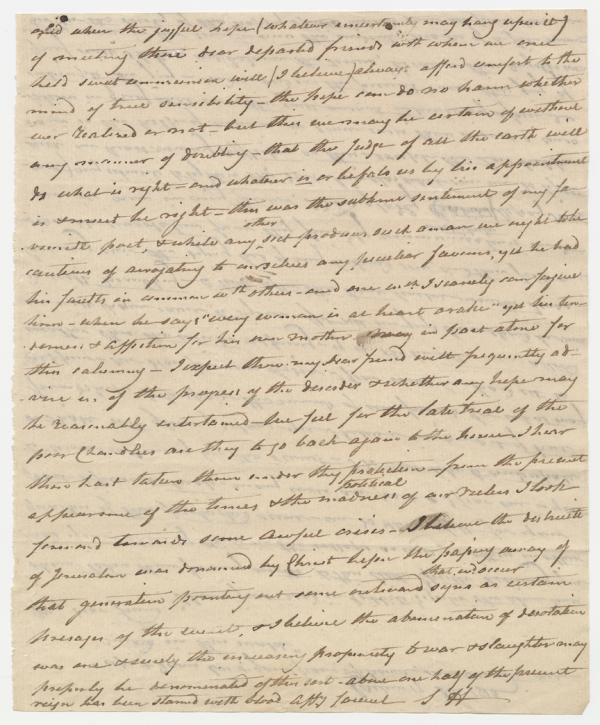 and when the joyful hope (whatever uncertainty may hang upon it)
of meeting those dear departed friends with whom we once
held sweet communion will (I believe) always afford comfort to the
mind of true sensibility - the hope can do no harm whether
ever realized or not - but this we may be certain of without
any manner of doubting - that the Judge of all the earth will
do what is right - and whatever is or befals us by his appointment
is & must be right - this was the sublime sentiment of my fa-
vourite poet, & while any other sect produces such a man we ought to be
cautious of arrogating to ourselves any peculiar favours, yet he had
his faults in common wth others - and one wch I scarcely can forgive
him - when he says "every woman is at heart a rake" yet his ten-
derness & affection for his own mother may in part atone for
this calumny - I expect thou my dear friend wilt frequently ad-
vise us of the progress of the disorder & whether any hope may
be reasonably entertained - we feel for the late trial of the
poor Chandlers are they to go back again to the house I hear
thou hast taken them under thy protection - from the present
appearance of the times & the political madness of our rulers I look
forward towards some awful crisis - I believe the destructn
of Jerusalem was denounced by Christ before the passing away of
that generation pointing out some outward signs that wd occur as certain
presages of the event, & I believe the abomination of desolation
was one & surely the increasing propensity to war & slaughter may
properly be denominated of this sort - above one half of the present
reign has been stained with blood affy farewel S H